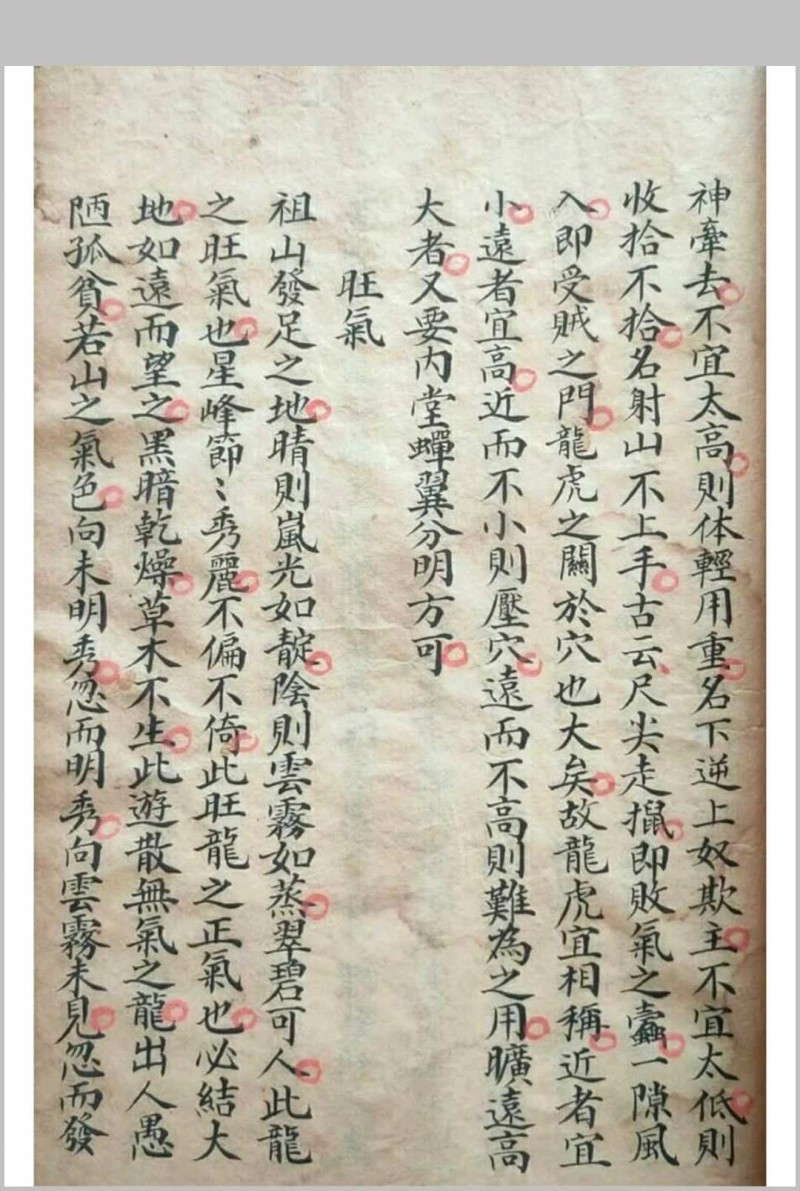 神牽去不宜太高則体輕用重名下逆上奴欺主不宜太低則
收拾不拾名射山不上手古云尺尖走㩉即敗氣之蠹一隙風
入即受賊之門龍虎之關於穴也大矣故龍虎宜相稱近者宜
小遠者宜高近而不小則壓穴遠而不高則難為之用曠遠高
大者又要內堂蟬翼分明方可
旺氣
祖山發足之地晴則嵐光如靛陰則雲霧如蒸翠碧可人此龍
之旺氣也星峰節〻秀麗不偏不倚此旺龍之正氣也必結大
地如遠而望之黑暗乾燥草木不生此遊散無氣之龍出人愚
陋孤貧若山之氣色向未明秀忽而明秀向雲霧未見忽而發